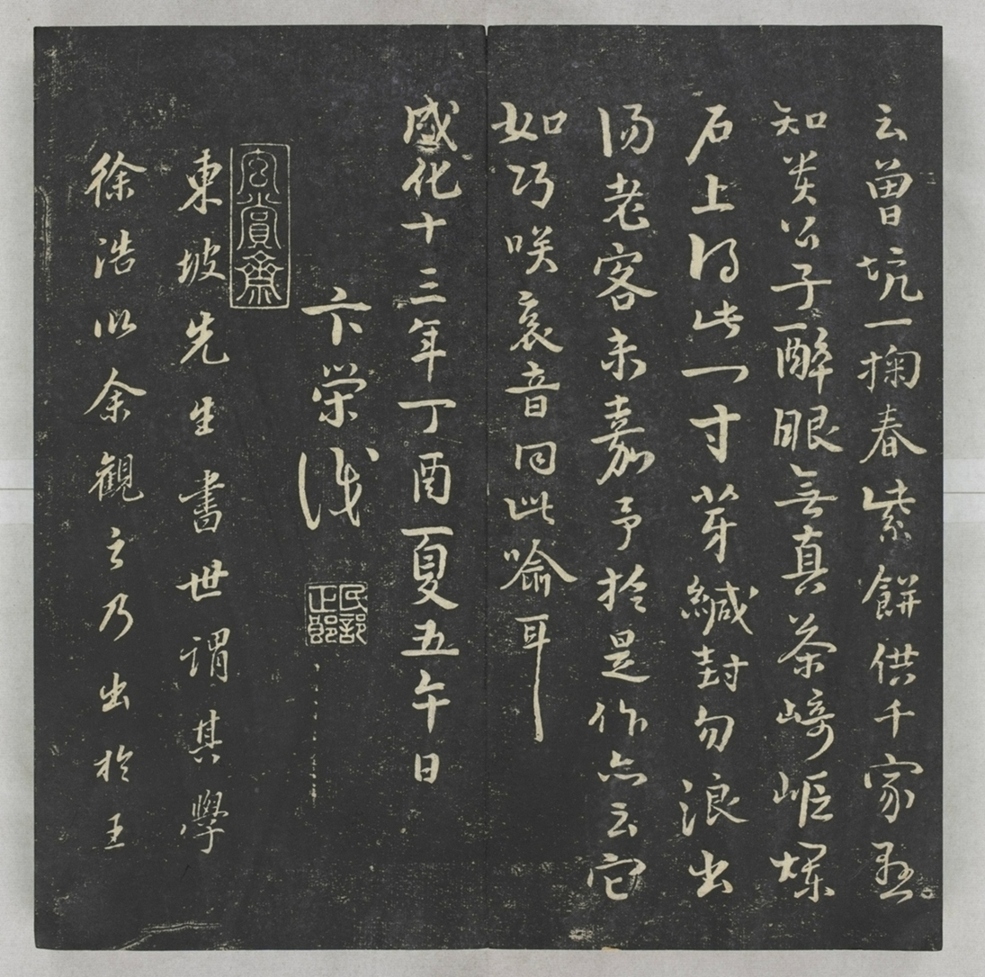 云曾坑一掬春紫餅供千家懸
知貴公子醉眼無真茶崎嶇爛
石上得此一寸芽緘封勿浪出
湯老客未嘉予於是作亦云它
如巧咲哀音同此喻耳
成化十三年丁酉夏五午日
卞榮識
民部正郎
玄賞齋
東坡先生書世謂其學
徐浩以余觀之乃出於王